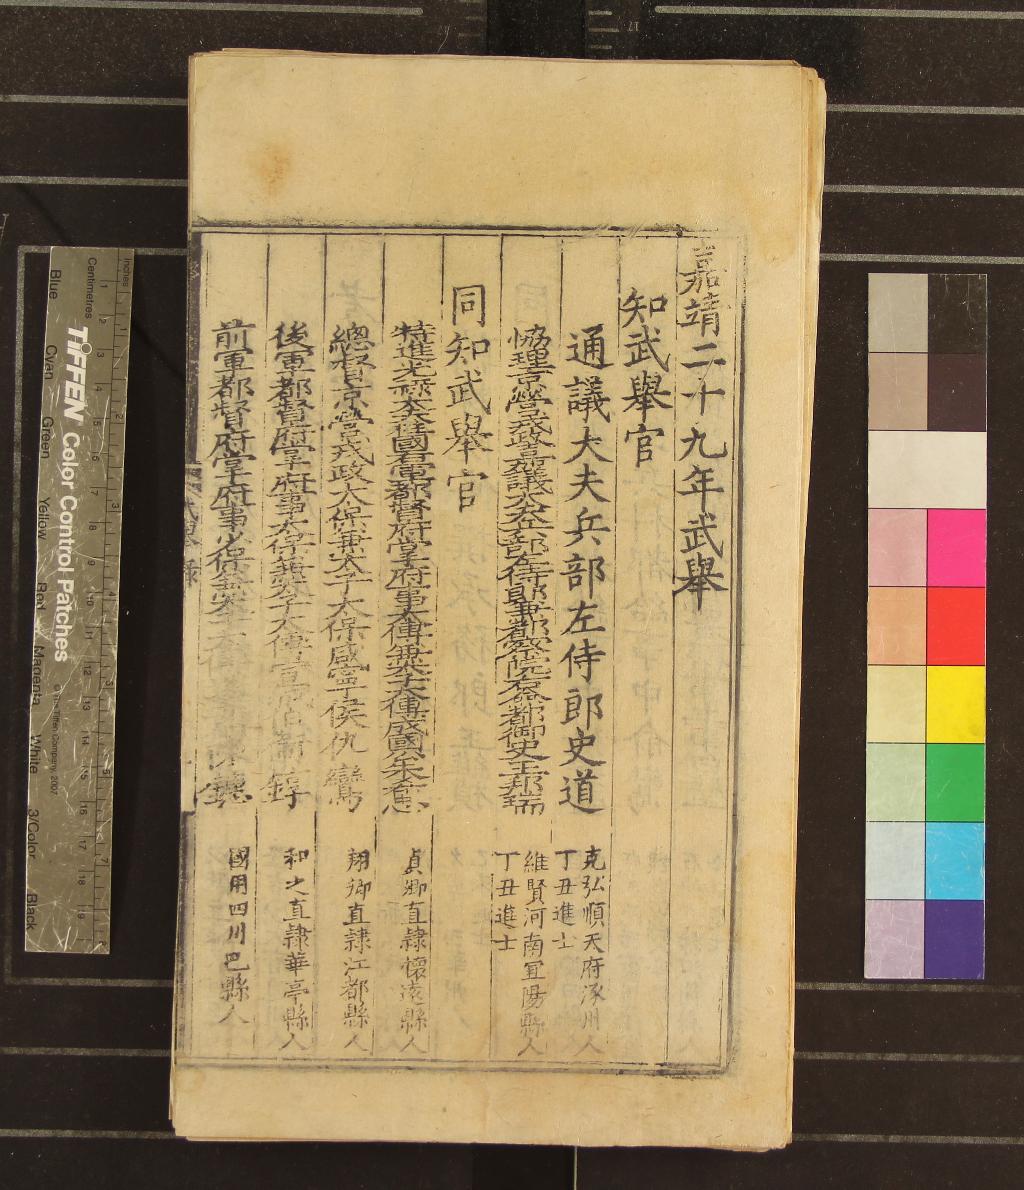 嘉靖二十九年武舉
知武舉官
通議大夫兵部左侍郎史道
克弘順天府涿州人
丁丑進士
協理京營戎政嘉議大夫兵部左侍郎兼都察院右僉都御史王邦瑞
維賢河南宜陽縣人
丁丑進士
同知武舉官
特進光祿大夫柱國右軍都督府掌府事太傅兼太子太傅成國公朱希忠
貞卿直隸懷遠縣人
總督京營戎政太保兼太子太保咸寧侯仇鸞
翔卿直隸江都縣人
後軍都督府掌府事太保兼太子太傅
錞
和之直隸華亭縣人
前軍都督府掌府事少保兼太子太
國用四川巴縣人
武舉錄
Inches
Centimetres
TIFFEN Color Control Patches
© The Tiffen Company, 2007
Blue
Cyan
Green
Yellow
Red
Magenta
White
3/Color
Black